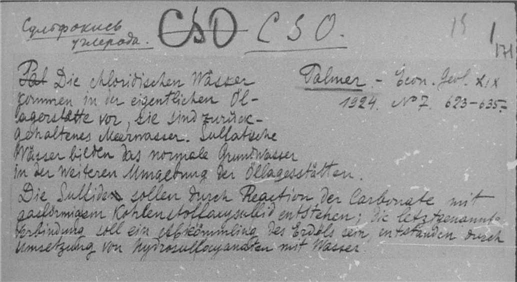 Сульфокись
углерода.
CSO
CSO.
15
1
Pat Die chloridischen Wässer
kommen in der eigentlichen Öl-
lagerstätte vor, sie sind zurück-
gehaltenes Meerwasser. Sulfatische
Wässer bilden das normale Grundwasser
in der weiteren Umgebung der Öllagerstätten.
Palmer – Econ. Geol. XIX
1924. No 7. 623-635.
Die Sulfide sollen durch Reaction der Carbonate mit
gasförmigem Kohlenstoffoxysulfid entstehen; die letztgenannte
Verbindung soll ein Abkömmling des Erdöls sein, entstanden durch
Umsetzung von Hydrosulfocyanaten mit Wasser